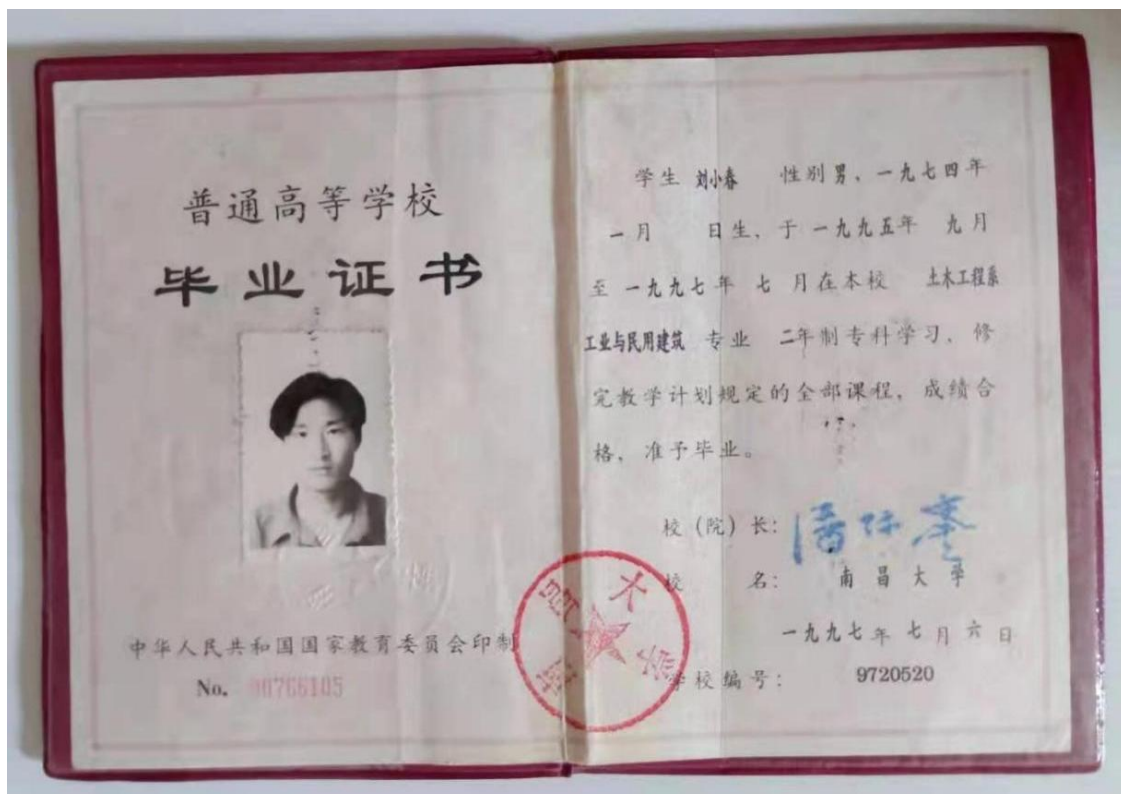 普通高等学校
毕业证书
中华人民共和国国家教育委员会印制
No. 00766105
学生 刘小春 性别 男、一九七四年
一月 日生、于 一九九五年 九月
至 一九九七年 七月在本校 土木工程系
工业与民用建筑 专业 二年制专科学习、修
完教学计划规定的全部课程,成绩合
格,准予毕业。
校(院)长:
校名: 南昌大学
一九九七年七月六日
学校编号: 9720520
南昌大学